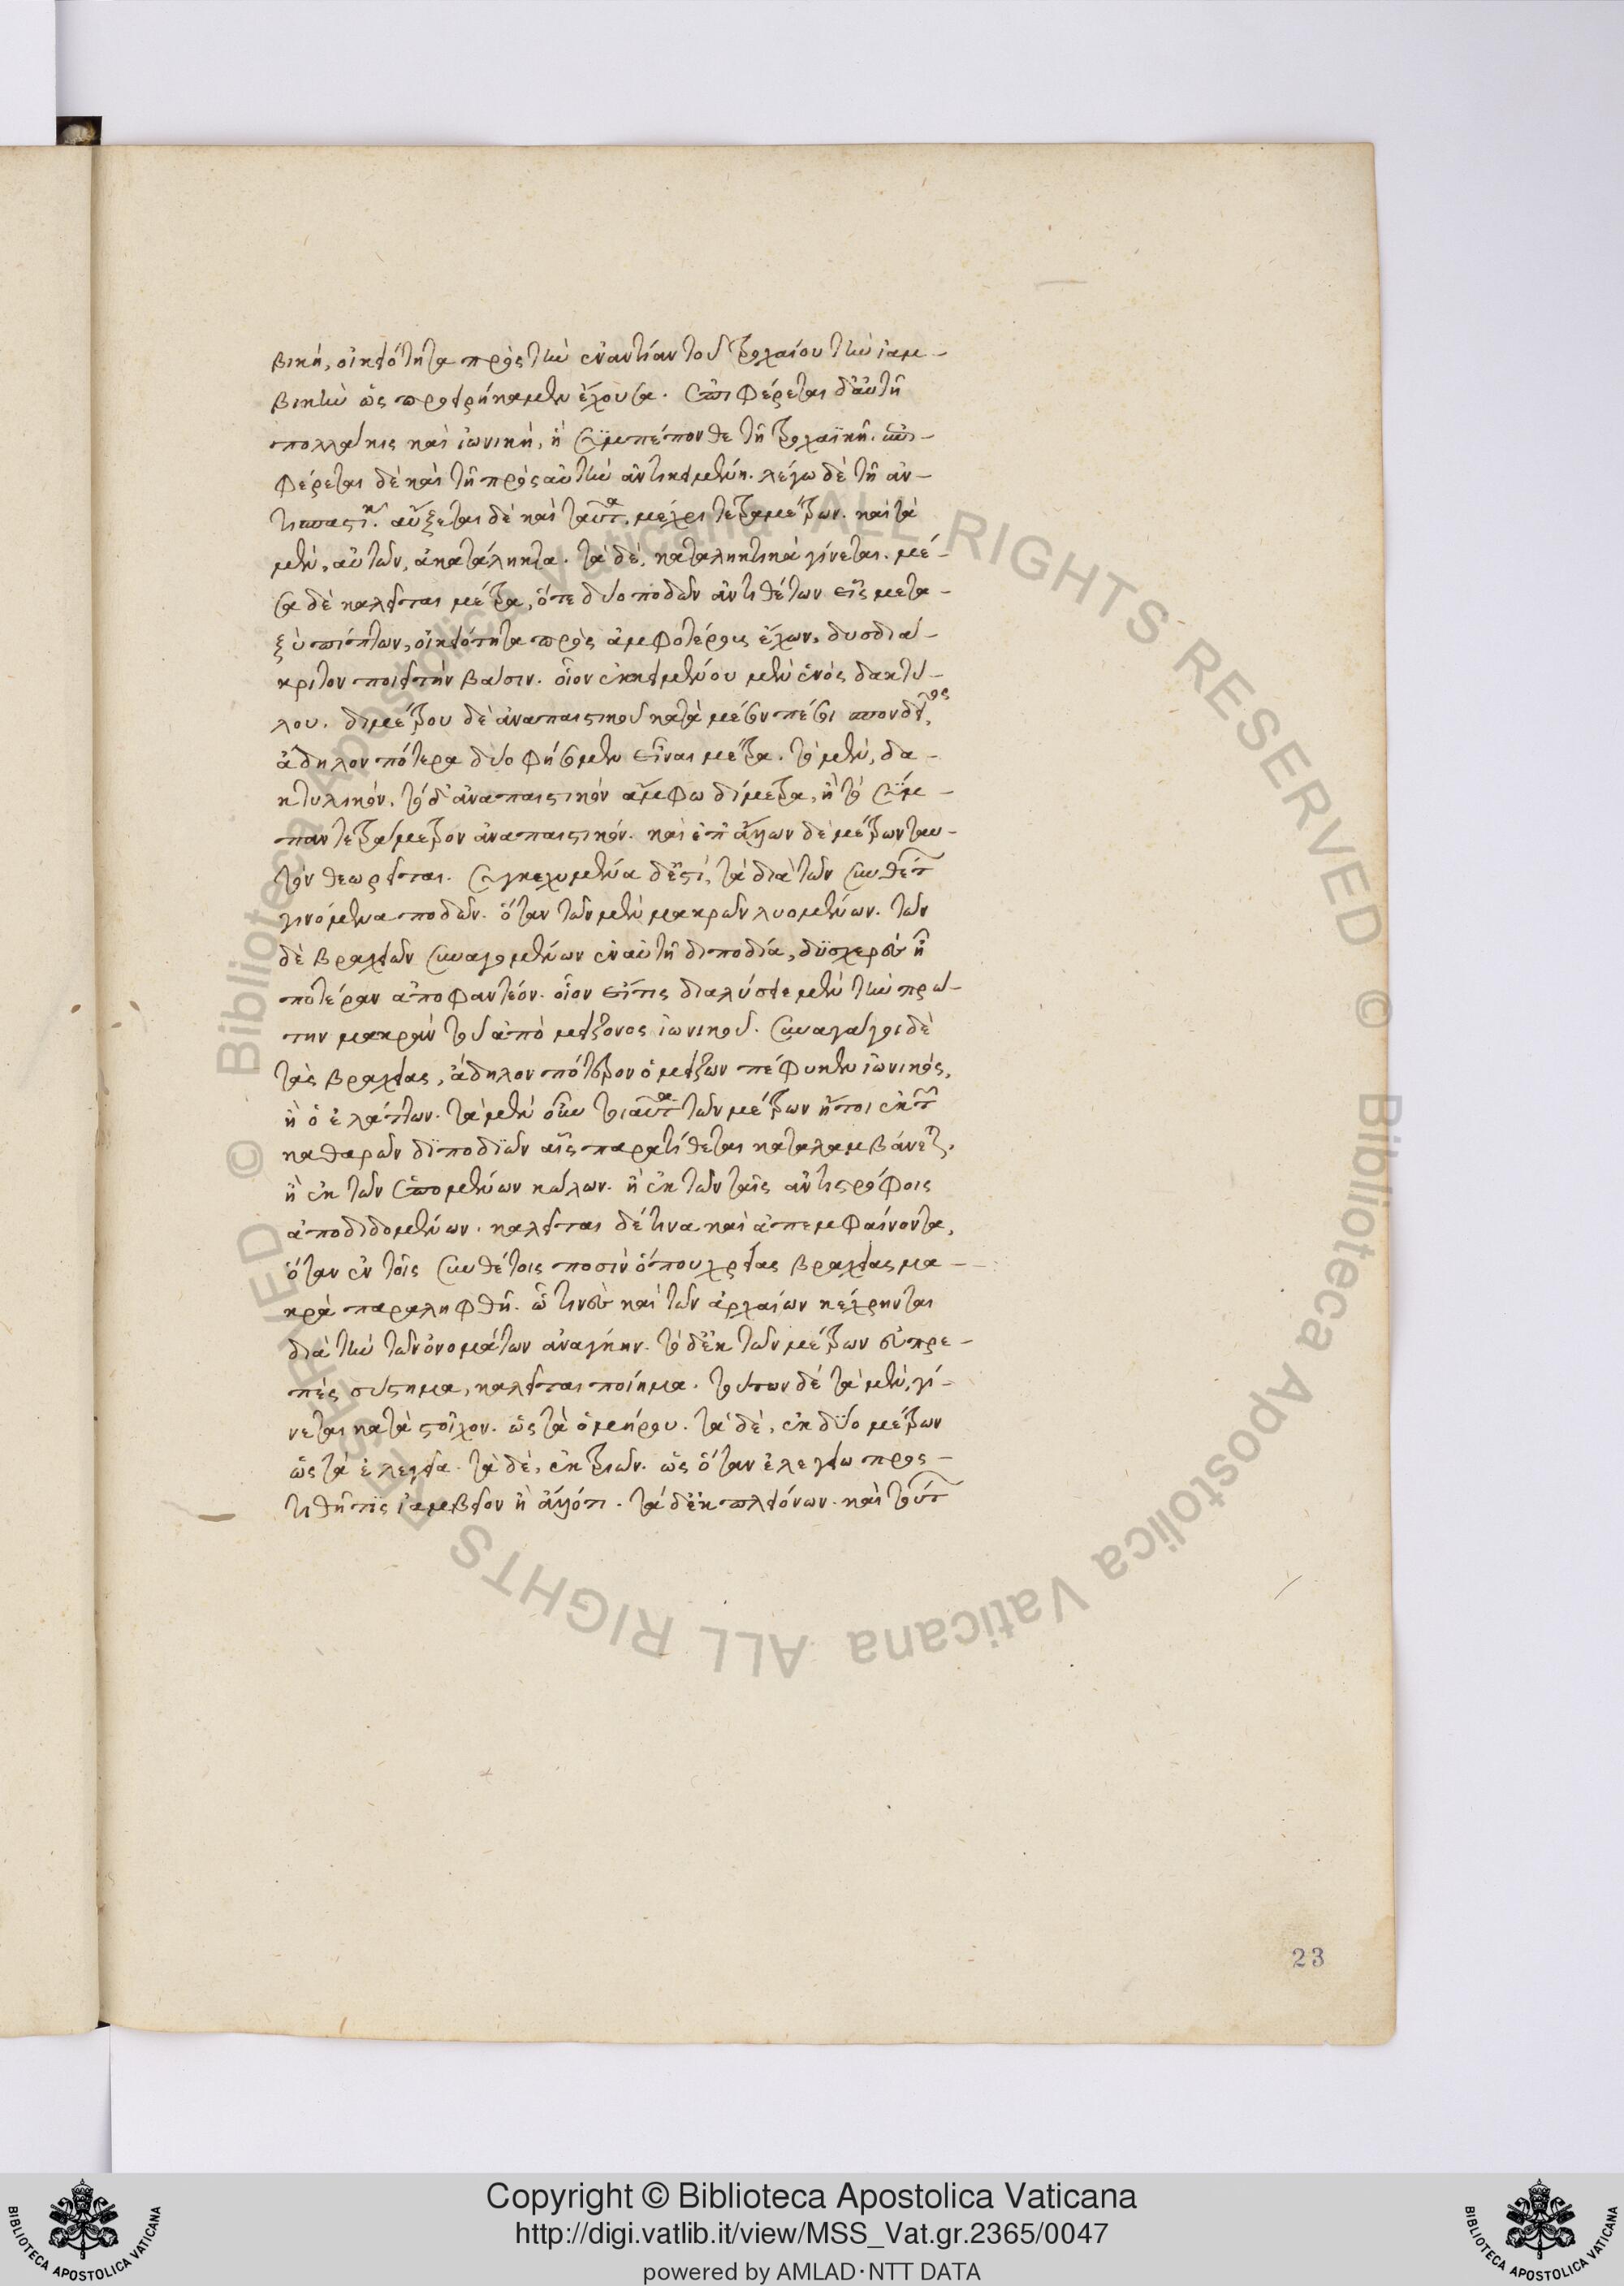 βικὴ, οἰκειότητα πρὸς τὴν ἐναντίαν τοῦ τροχαίου τὴν ἰαμ-
βικὴν ὡς προειρήκαμεν ἔχουσα. ἐπιφέρεται δ' αὐτῆ
πολλάκις καὶ ἰωνικὴ, ἣ συμπέπονθε τῆ τροχαϊκῆ. ἐπι-
φέρεται δὲ καὶ τῆ πρὸς αὐτὴν ἀντικειμένη. λέγω δὲ τῆ ἀν-
τισπαστικ. αὔξεται δὲ καὶ ταῦτα, μέχρι τετραμέτρων. καὶ τὰ
μὲν, αὐτῶν, ἀκατάληκτα. τὰ δὲ, καταληκτικὰ γίνεται. μέ-
σα δὲ καλεῖται μέτρα, ὅτε δύο ποδῶν ἀντιθέτων εἷς μετα-
ξὺ πίπτων, οἰκειότητα πρὸς ἀμφοτέρους ἔχων, δυσδιά-
κριτον ποιεῖ τὴν βάσιν. οἷον ἐκκειμένου μὲν ἑνὸς δακτύ-
λου. διμέτρου δὲ ἀναπαιστικοῦ κατὰ μέσον πέσοι σπονδεῖος,
ἄδηλον πότερα δύο φήσομεν εἶναι μέτρα. τὸ μὲν, δα-
κτυλικόν. τὸ δ' ἀναπαιστικὸν ἄμφω δίμετρα, ἢ τὸ σύμ-
παν τετράμετρον ἀναπαιστικόν. καὶ ἐπ' ἄλλων δὲ μέτρων ταυ-
τὸν θεωρεῖται. συγκεχυμένα δέ ἐστι, τὰ διὰ τῶν συνθέτ
γινόμενα ποδῶν. ὅταν τῶν μὲν μακρῶν λυομένων. τῶν
δὲ βραχειῶν συναγομένων ἐν αὐτῆ διποδία, δυσχερὲς ἦ
ποτέραν ἀποφαντέον. οἷον εἴ τις διαλύσειε μὲν τὴν πρώ-
την μακρὰν τοῦ ἀπὸ μείζονος ἰωνικοῦ. συναγάγοι δὲ
τὰς βραχείας, ἄδηλον πότερον ὁ μείζων πέφυκεν ἰωνικὸς,
ἢ ὁ ἐλάττων. τὰ μὲν οὖν τοιαῦτα τῶν μέτρων ἤτοι ἐκ τ
καθαρῶν διποδιῶν αἷς παρατίθεται καταλαμβάνετ.
ἢ ἐκ τῶν ἑπομένων κώλων. ἢ ἐκ τῶν ταῖς ἀντιστρόφοις
ἀποδιδομένων. καλεῖται δέ τινα καὶ ἀπεμφαίνοντα,
ὅταν ἐν τοῖς συνθέτοις ποσὶν ὅπου χρείας βραχείας μα-
κρὰ παραληφθῆ. ᾧ τινὲς καὶ τῶν ἀρχαίων κέχρηνται
διὰ τὴν τῶν ὀνομάτων ἀνάγκην. τὸ δ' ἐκ τῶν μέτρων εὐπρε-
πὲς σύστημα, καλεῖται ποίημα. τούτων δὲ τὰ μὲν, γί-
νεται κατὰ στοῖχον. ὡς τὰ ὁμήρου. τὰ δὲ, ἐκ δύο μέτρων
ὡς τὰ ἐλεγεῖα. τὰ δὲ, ἐκ τριῶν. ὡς ὅταν ἐλεγείω προσ-
τιθῆ τις ἰαμβεῖον ἢ ἄλλό τι. τὰ δ' ἐκ πλειόνων. καὶ τούτ
23
© Biblioteca Apostolica Vaticana ALL RIGHTS RESERVED © Biblioteca Apostolica Vaticana ALL RIGHTS RESERVED
BIBLIOTECA APOSTOLICA VATICANA
Copyright © Biblioteca Apostolica Vaticana
http://digi.vatlib.it/view/MSS_Vat.gr.2365/0047
powered by AMLAD·NTT DATA
BIBLIOTECA APOSTOLICA VATICANA